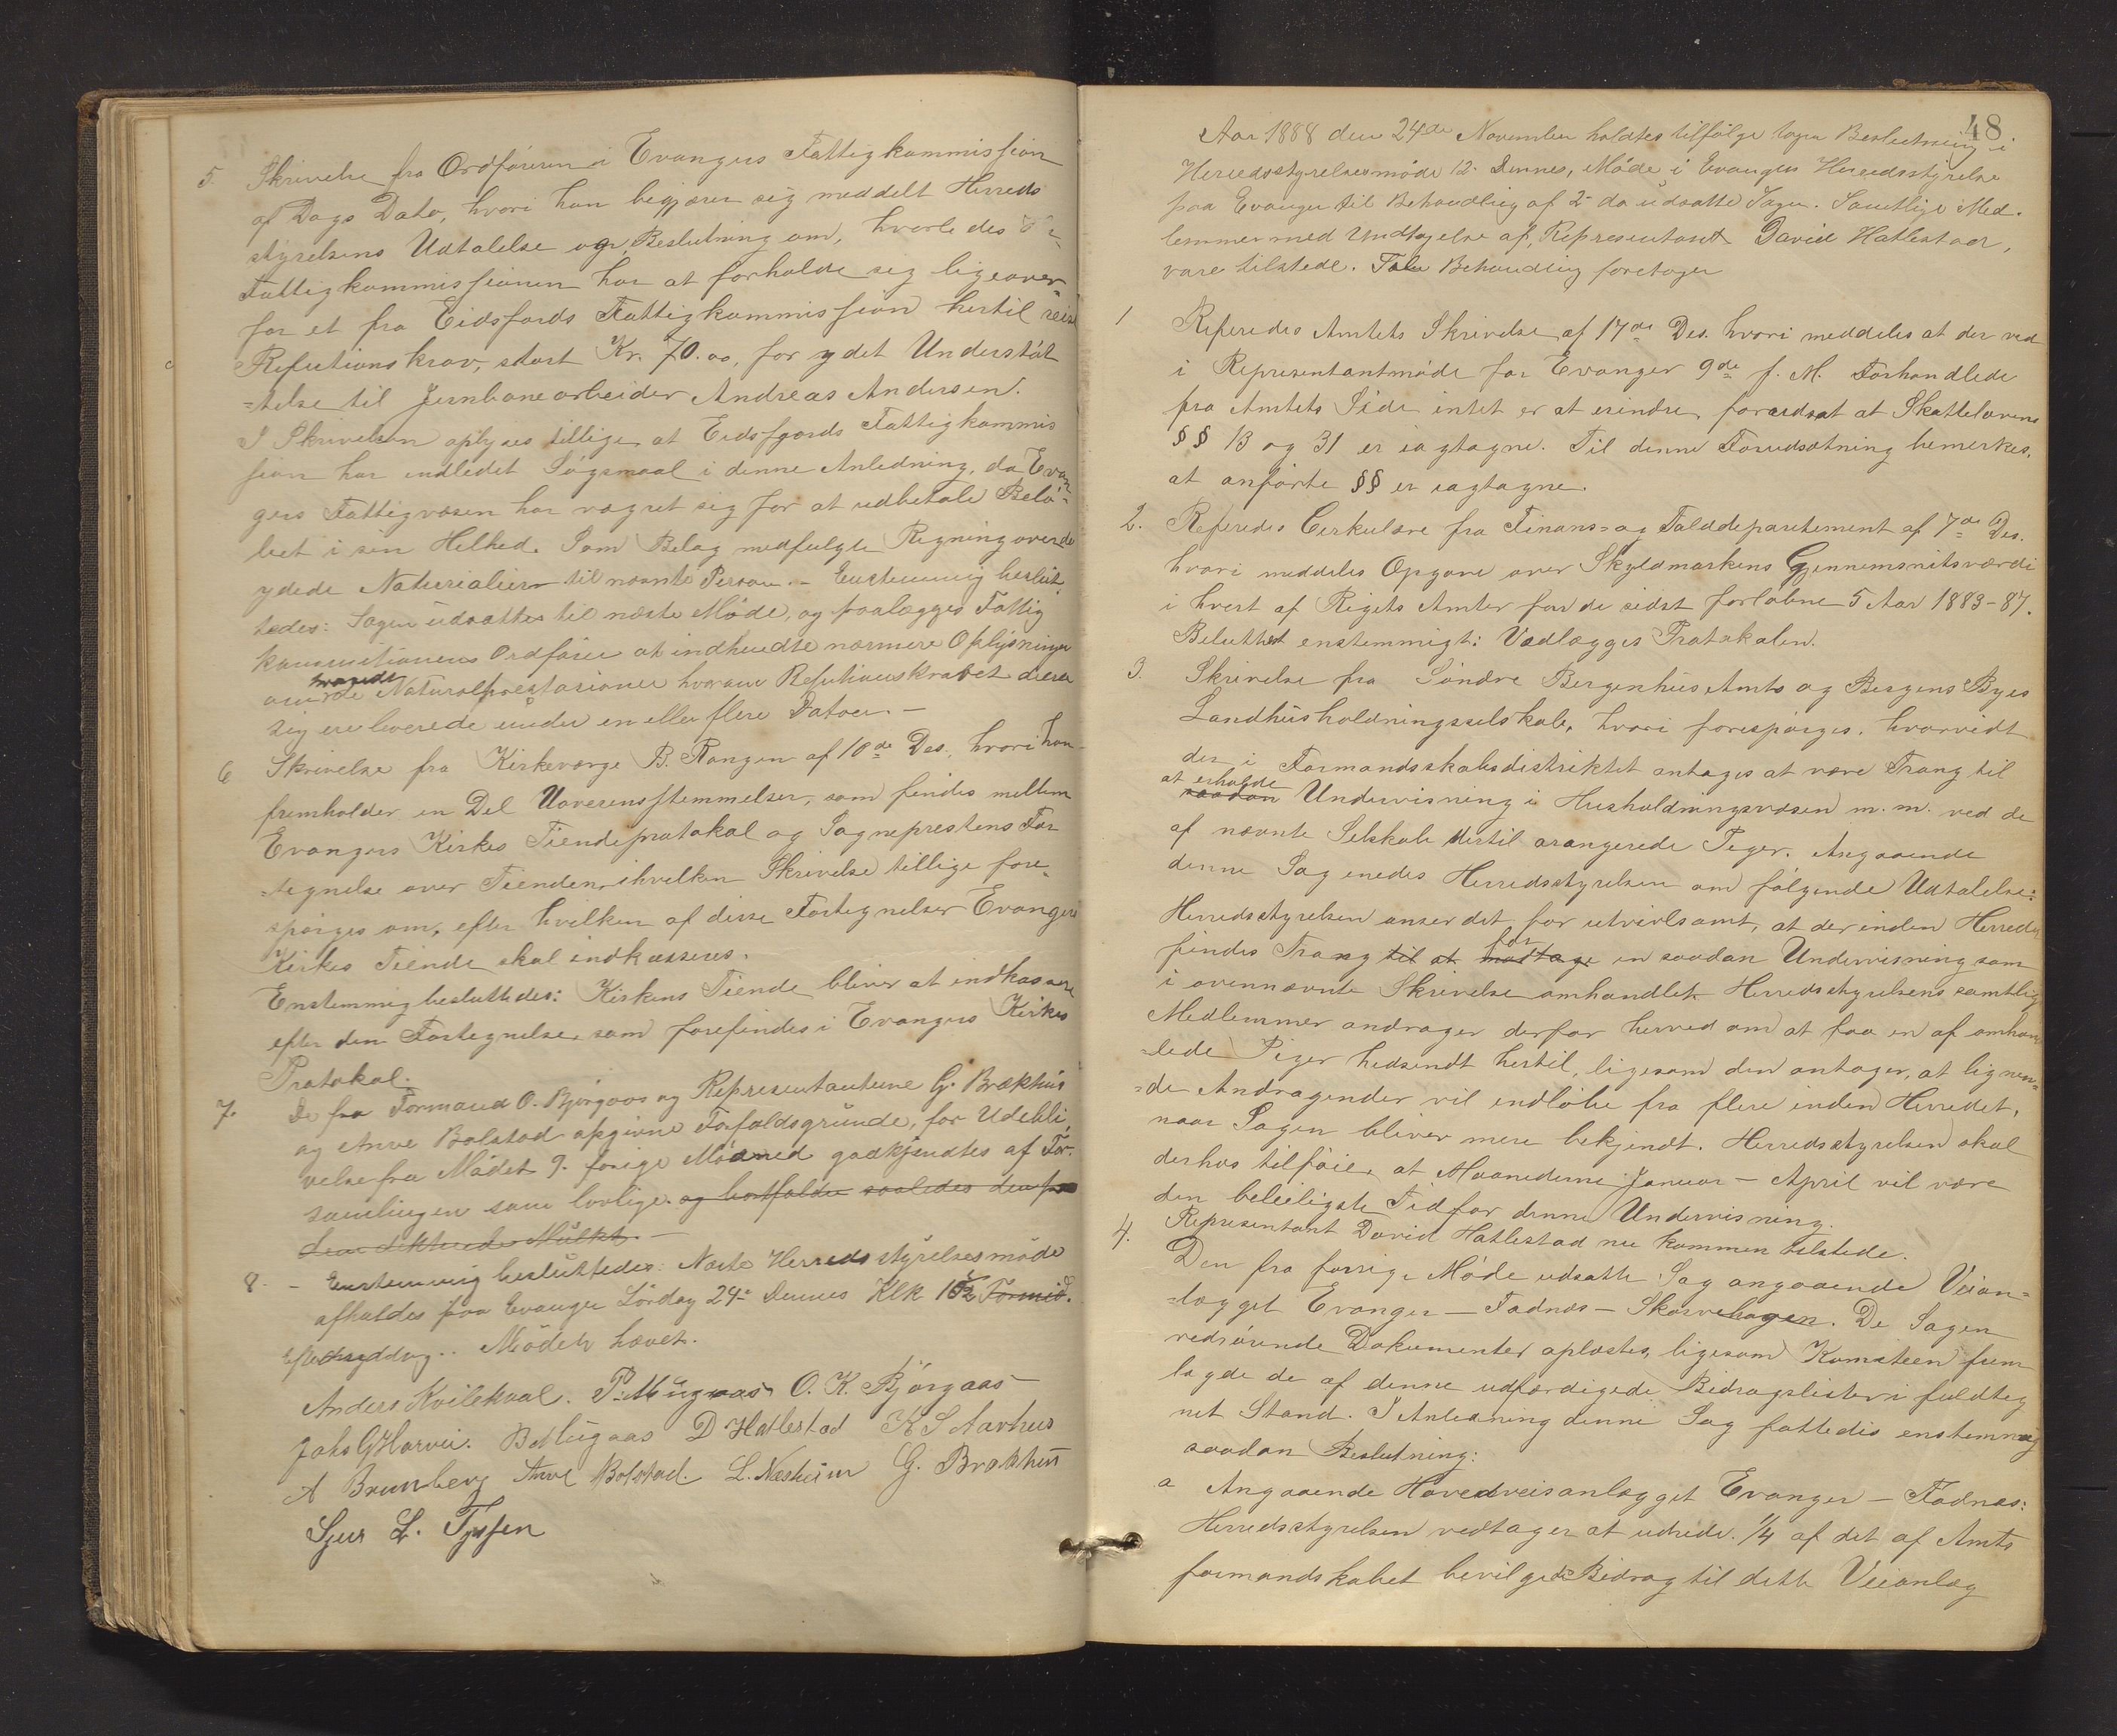 5. Skrivelse fra Ordføreren i Evangers Fattigkommission
af Dags Dato, hvori han begjærer sig meddelt Herreds
styrelsens Udtalelse og Beslutning om, hvorledes
Fattigkommissionen har at forholde sig ligeover-
for et fra Eidsfjords Fattigkommission hertil reist
Refutionskrav, stort Kr. 70.00, for ydet Understøt
-telse til Jernbanearbeider Andreas Andersen.
I Skrivelsen oplyses tillige at Eidsfjords Fattigkommis
sion har indledet Søgsmaal i denne Anledning, da Evan-
gers Fattigvæsen har vægret sig for at udbetale Belø-
bet i sin Helhed. Som Bilag medfulgte Regning over de
ydede Naturialier til nævnte Person. – Enstemmig beslut-
tedes: Sagen udsattes til næste Møde, og paalægges Fattig
kommissionens Ordfører at indhendte nærmere Oplysninger
om hvorvidt de Naturalpræstasioner hvorom Refutionskravet dreier
sig ere leverede under en eller flere Datoer. –
6 Skrivelse fra Kirkeværge B. Rongen af 10de Ds. hvori han
fremholder en Del Uoverensstemmelser, som findes mellem
Evangers Kirkes Tiendeprotokol og Sogneprestens For
-tegnelse over Tienden, ihvilken Skrivelse tillige fore-
spørges om, efter hvilken af disse Fortegnelser Evangers
Kirkes Tiende skal indkasseres.
Enstemmig besluttedes: Kirkens Tiende bliver at indkassere
efter den Fortegnelse, som forefindes i Evangers Kirkes
Protokol.
7. De fra Formand O. Bjørgaas og Representanterne G. Brækhus
og Anve Bolstad opgivne Forfaldsgrunde, for Udebli-
velse fra Mødet 9. forige Maaned godkjendtes af For-
samlingen som lovlige. og bortfalder saaledes den for
dem dikterede Mulkt. –
8. – Enstemmig besluttedes: Næste Herredsstyrelsesmøde
afholdes paa Evanger Lørdag 24de Dennes Klk 10 1/2 Formid.
Eftermiddag.. Mødet hævet.
Anders Kvilekval. P. Mugaas O. K. Bjørgaas
Johs G Horvei. B Mugaas D Hatlestad K S Aarhus
A Brunborg Anve Bolstad. L. Næsheim G. Brækhus
Sjur L. Tyssen
48
Aar 1888 den 24de November holdtes tilfølge tagen Beslutning i
Herredsstyrelsesmøde 12. Dennes, Møde i Evangers Herredsstyrelse
paa Evanger til Behandling af 2 da udsatte Sager. Samtlige Med-
lemmer med Undtagelse af, Representant David Hatlestad,
vare tilstede. Til Behandling foretoges
1 Referedes Amtets Skrivelse af 17de Ds. hvori meddeles at der ved
i Representantmøde for Evanger 9de f. M. Forhandlede
fra Amtets Side intet er at erindre, forudsat at Skattelovens
§§ 13 og 31 er iagtagne. Til denne Forudsætning bemerkes,
at anførte §§ er iagtagne.
2. Referedes Cirkulære fra Finans- og Tolddepartement af 7de Ds.
hvori meddeles Opgave over Skyldmarkens Gjennemsnitsværdi
i hvert af Rigets Amter for de sidst forløbne 5 Aar 1883-87.
Beluttet enstemmigt: Vedlægges Protokolen.
3. Skrivelse fra Søndre Bergenhus Amts og Bergens Byes
Landhusholdningsselskab, hvori forespørges, hvorvidt
der i Formandsskabsdistriktet antages at være Trang til
at erholde saadan Undervisning i Husholdningsvæsen m. m. ved de
af nævnte Selskab dertil arangerede Piger. Angaaende
denne Sag enedes Herredsstyrelsen om følgende Udtalelse:
Herredsstyrelsen anser det for utvivlsomt, at der inden Herredet
findes Trang til at modtage for en saadan Undervisning som
i ovennævnte Skrivelse omhandlet. Herredsstyrelsens samtlige
Medlemmer andrager derfor herved om at faa en af omhand
-lede Piger hedsendt hertil, ligesom den antager, at lignen-
-de Andragender vil indløbe fra flere inden Herredet,
naar Sagen bliver mere bekjendt. Herredsstyrelsen skal
derhos tilføie, at Maanederne Januar – April vil være
den beleiligste Tid for denne Undervisning.
Representant David Hatlestad nu kommen tilstede.
4. Den fra forrige Møde udsatte Sag angaaende Veian-
-lægget Evanger – Fadnæs – Skorvehagen. De Sagen
vedrørende Dokumenter oplæstes, ligesom Komiteen frem
lagde de af denne udfærdigede Bidragslister i fuldteg
net Stand. I Anledning denne Sag fattedes enstemmig
saadan Beslutning:
a Angaaende Hovedveisanlægget Evanger – Fadnæs:
Herredsstyrelsen vedtager at udrede 1/4 af det af Amts
formandskabet bevilgede Bidrag til dette Veianlæg